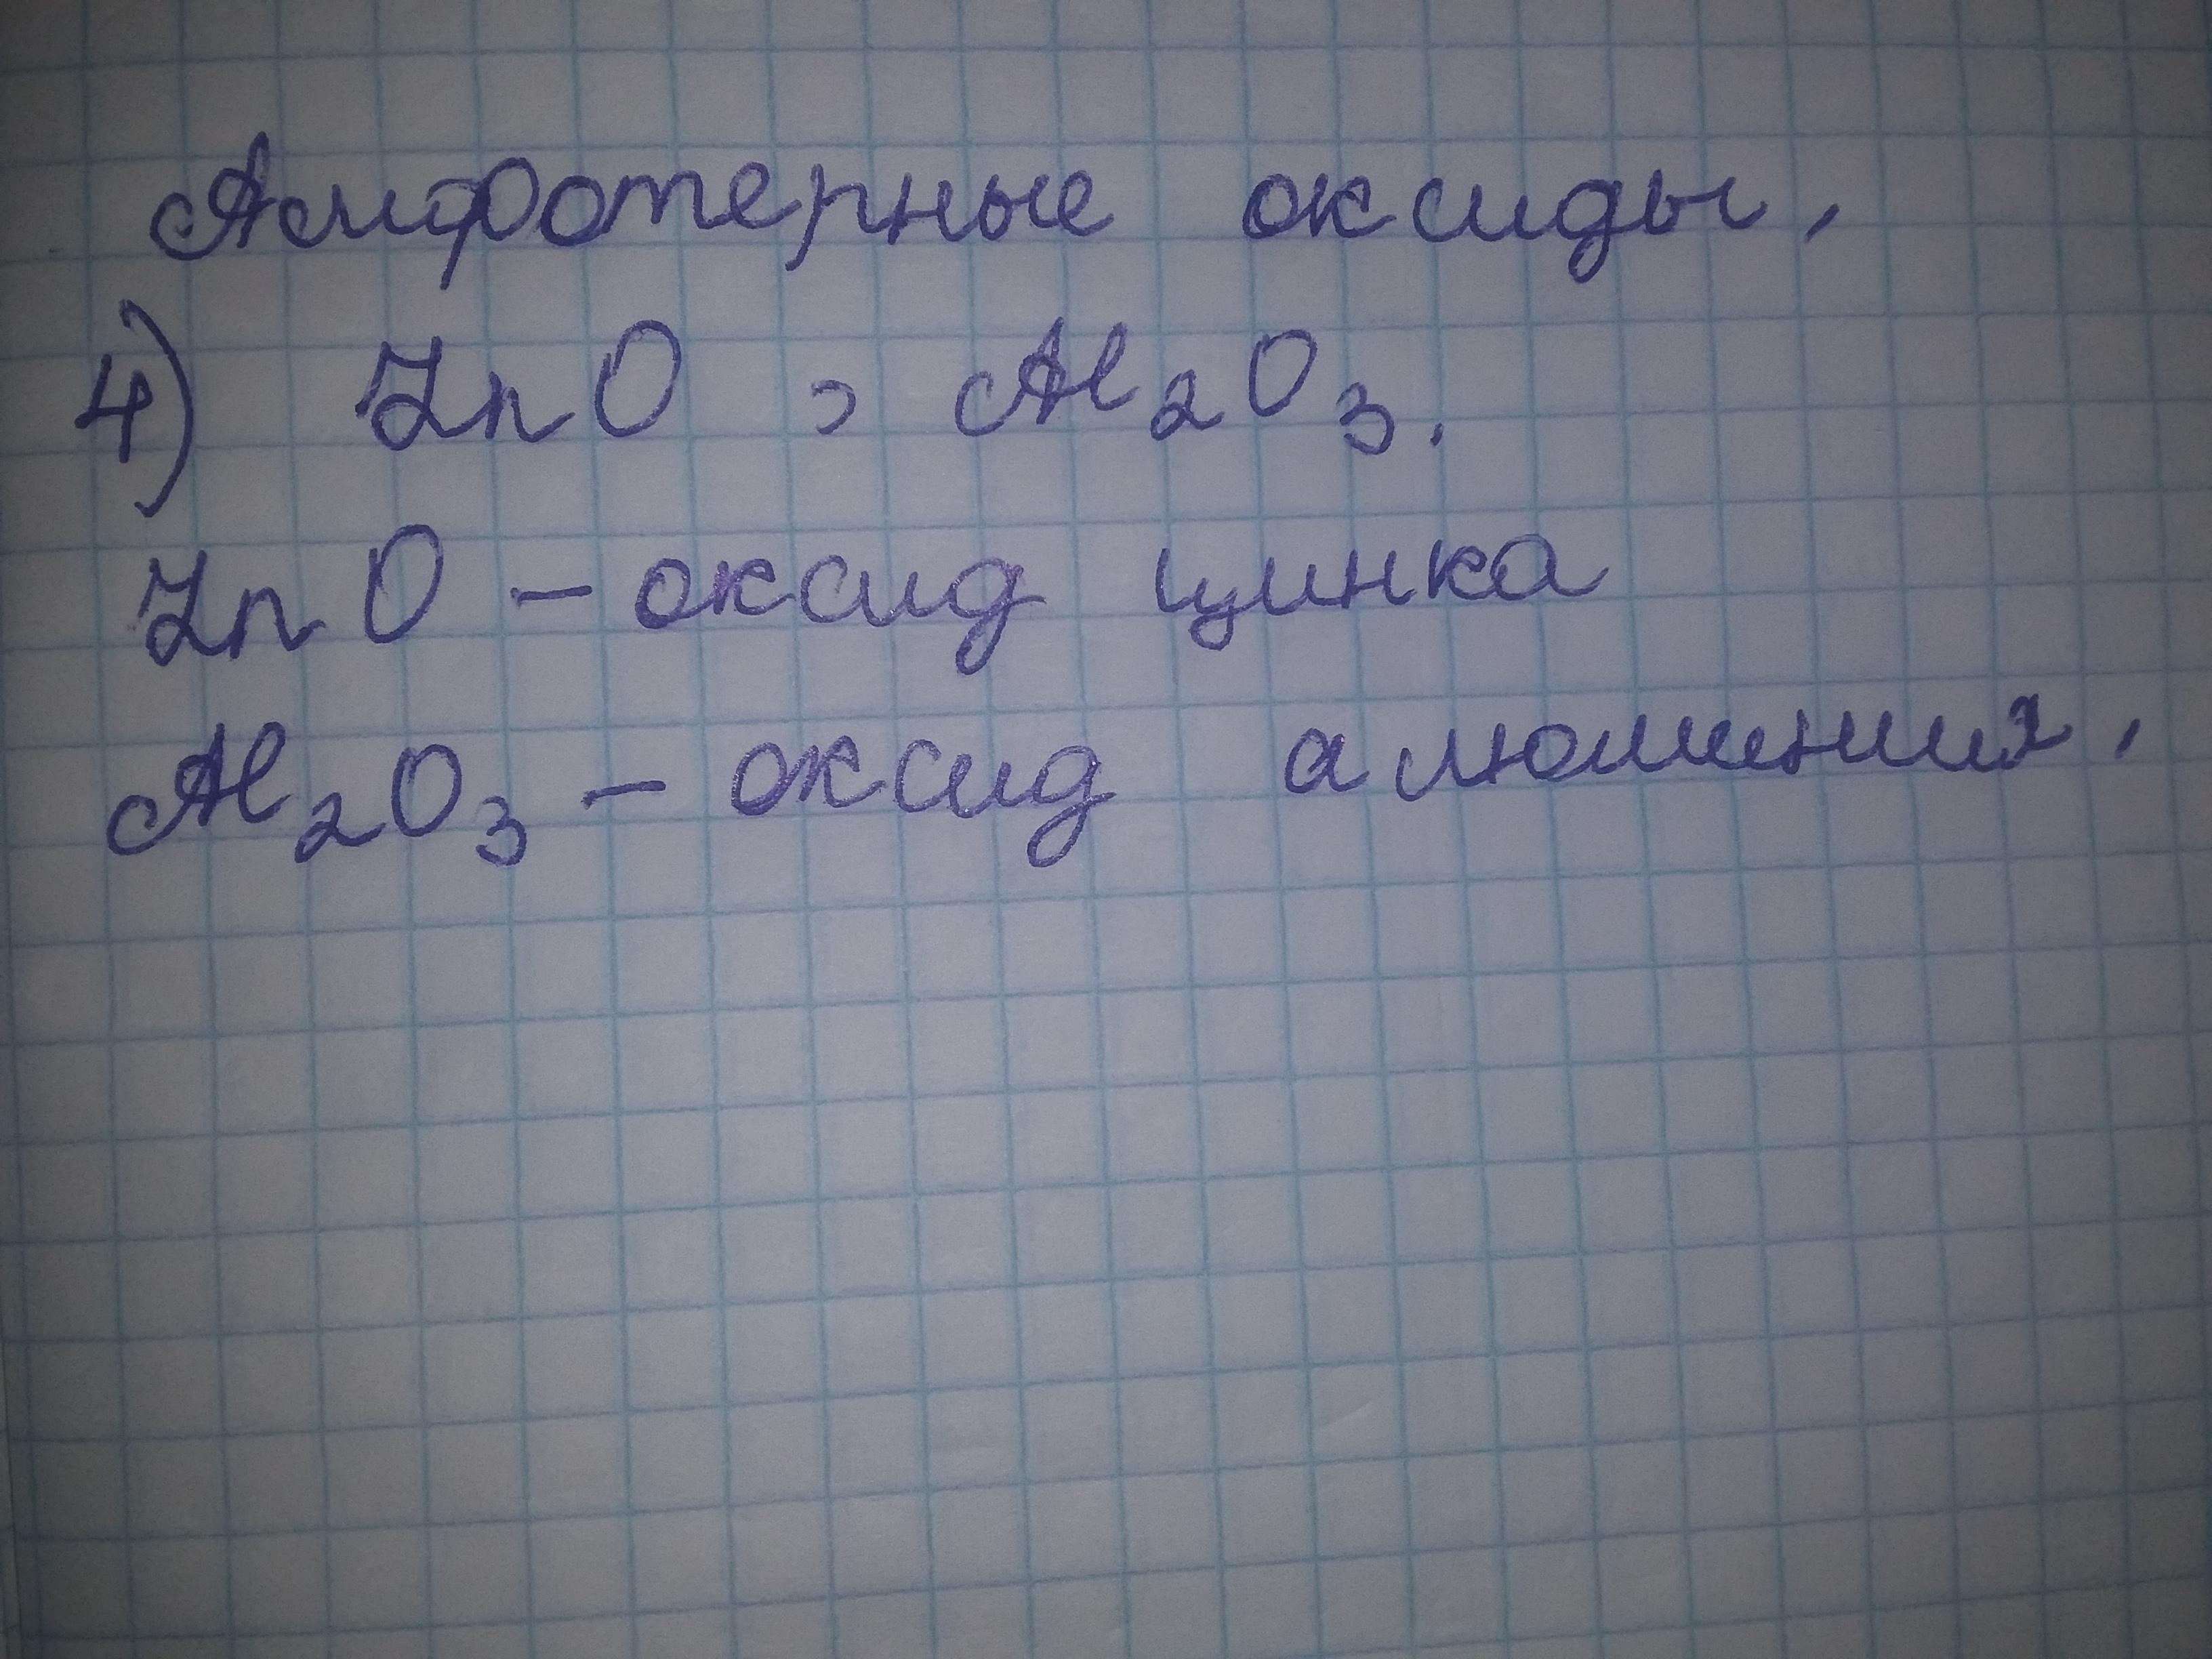 Амфотерные оксиды,
4) ZnO , Al₂O₃.
ZnO – оксид цинка
Al₂O₃ – оксид алюминия,